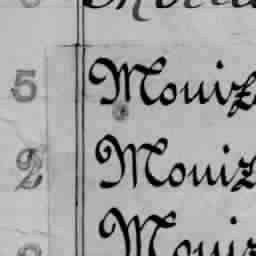 5 Mouiz
2 Mouiz
Mouiz